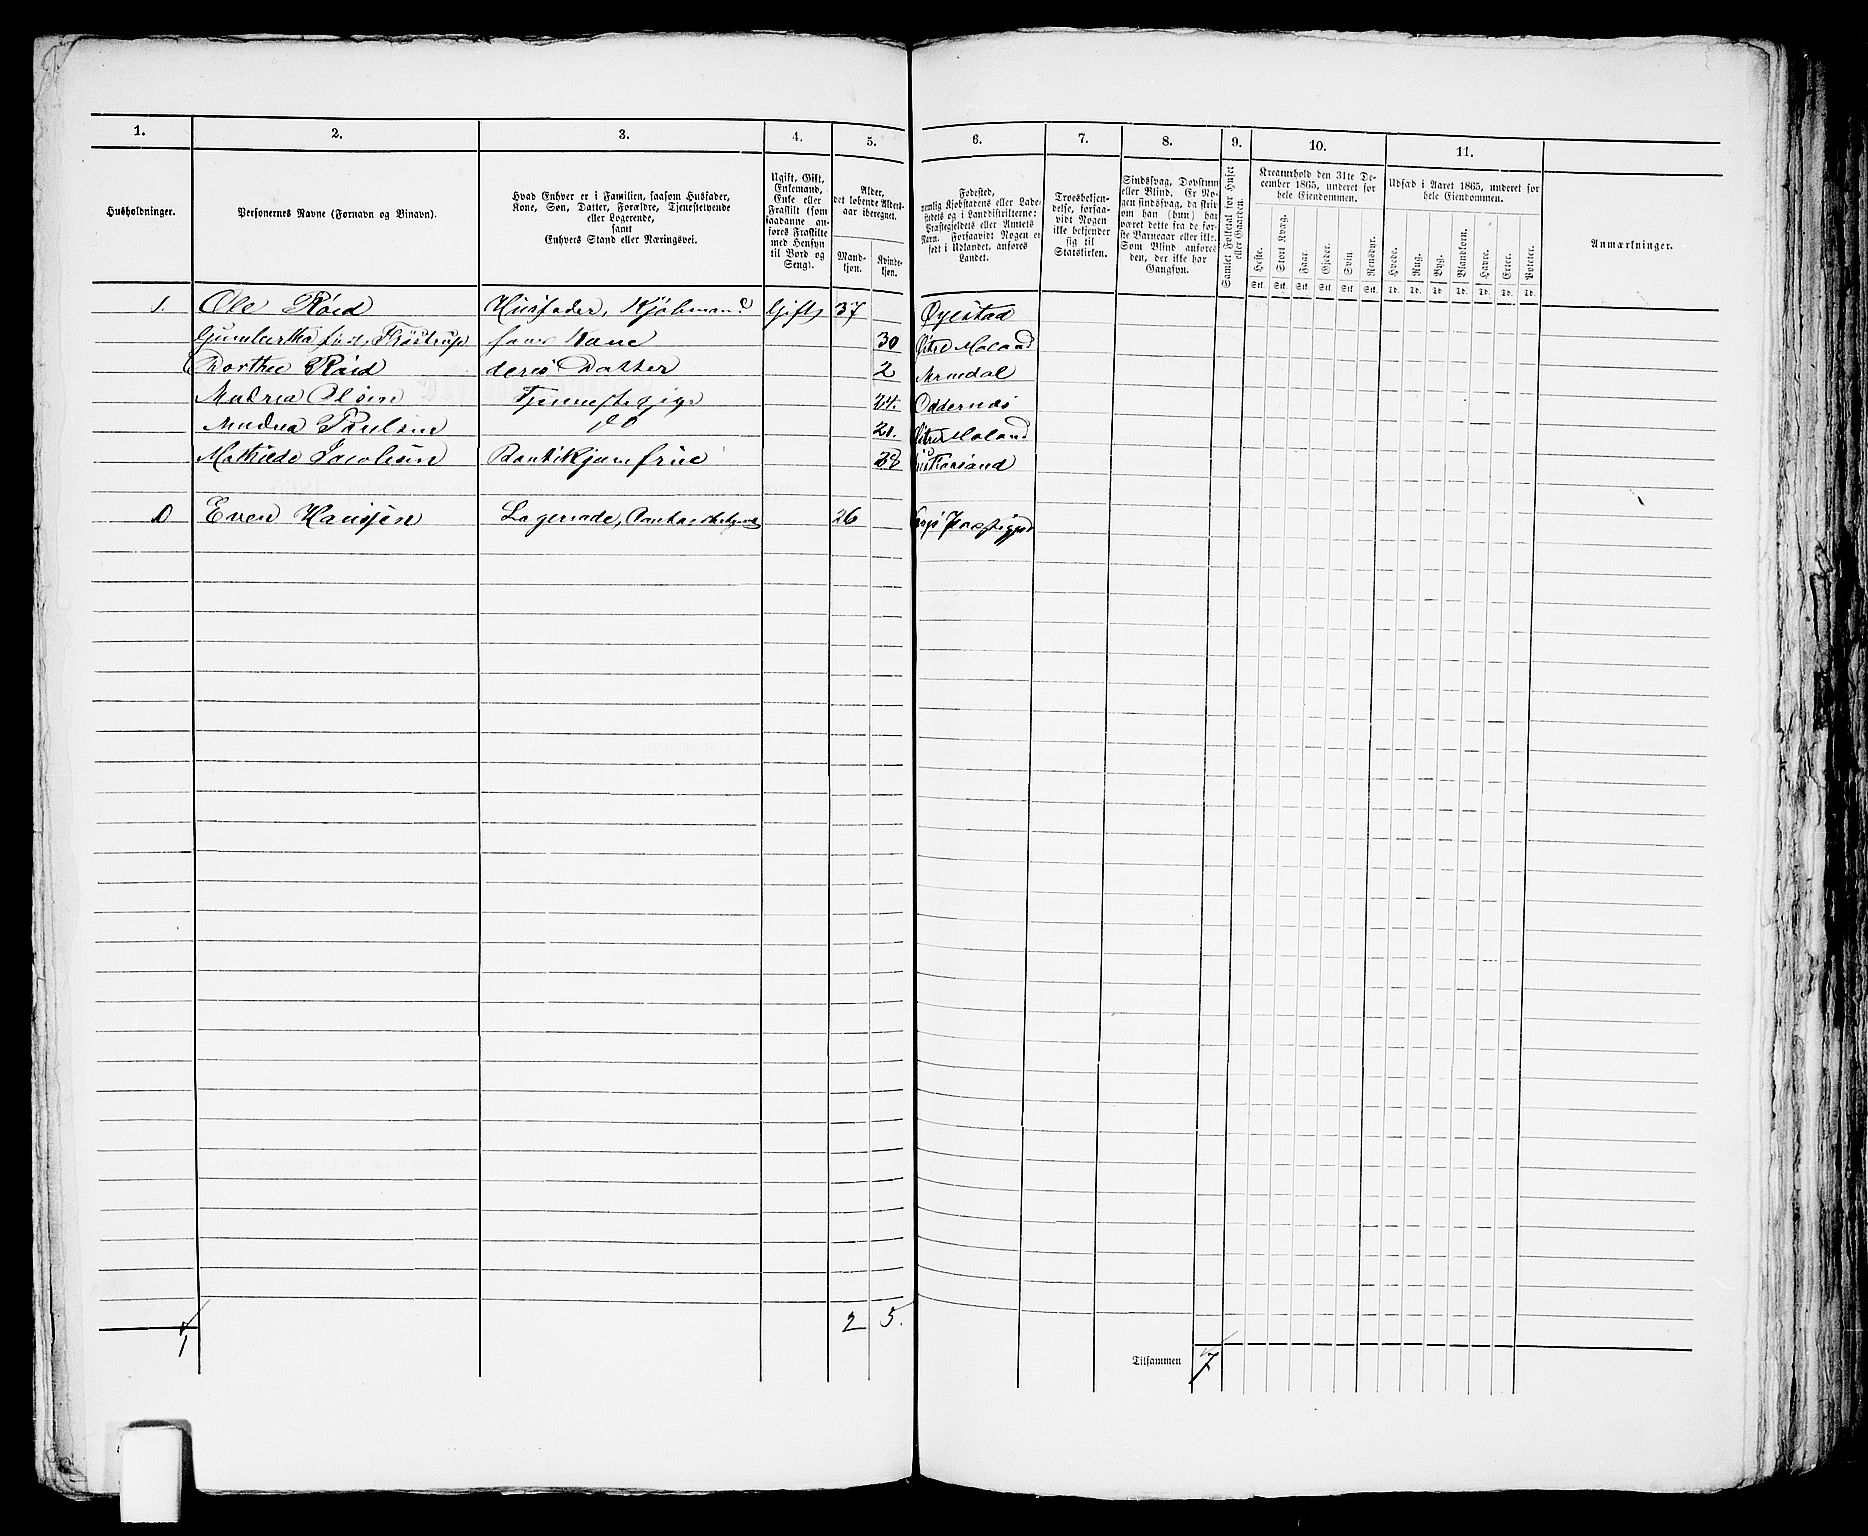 1. 2. 3. 4. 5. 6. 7. 8. 9. 10. 11.
Husholdninger.
Personernes Navne (Fornavn og Binavn).
Hvad Enhver er i Familien, saasom Husfader,
Kone, Søn, Datter, Forældre, Tjenestetyende
eller Logerende,
samt
Enhvers Stand eller Næringsvei.
Ugift, Gift,
Enkemand,
Enke eller
Fraskilt (som
saadanne an-
føres Fraskilte
med Hensyn
til Bord og
Seng).
Alder,
det løbende Alders-
aar iberegnet.
Mand-
kjøn.
Kvinde-
kjøn.
Fødested,
nemlig Kjøbstadens eller Lade-
stedets og i Landdistrikterne:
Præstegjeldets eller Amtets
Navn. Forsaavidt Nogen er
født i Udlandet, anføres
Landet.
Troesbekjen-
delse, forsaa-
vidt Nogen
ikke bekjender
sig til
Statskirken.
Sindssvag, Døvstum
eller Blind. Er No-
gen sindssvag, da skriv
om han (hun) har
været dette fra de før-
ste Barneaar eller ikke.
Som Blind anføres
den, der ikke har
Gangsyn.
Samlet Folketal for Huset
eller Gaarden.
Kreaturhold den 31te De-
cember 1865, underet for
hele Eiendommen.
Heste.
Stort Kvæg.
Faar.
Gjeder.
Svin
Rensdyr.
Stk. Stk. Stk. Stk. Stk. Stk.
Udsæd i Aaret 1865, underet for
hele Eiendommen.
Hvede.
Rug.
Byg.
Blandkorn.
Havre.
Erter.
Poteter.
Td. Td. Td. Td. Td. Td. Td.
Anmærkninger.
1. Ole Röed Husfader, Kjöbmand Gift 37 Øyestad
født hans Kone 30 Østre Moland
Dorthe Röed deres Datter 2 Arendal
Andrea Olsen Tjenestepige 24. Oddernæs
Andrea Paulsen do 20. Østre Moland
Mathilde Jacobsen Butikjomfrue
Even Hansen Logerende, 26
1 2 5.
Tilsammen 7